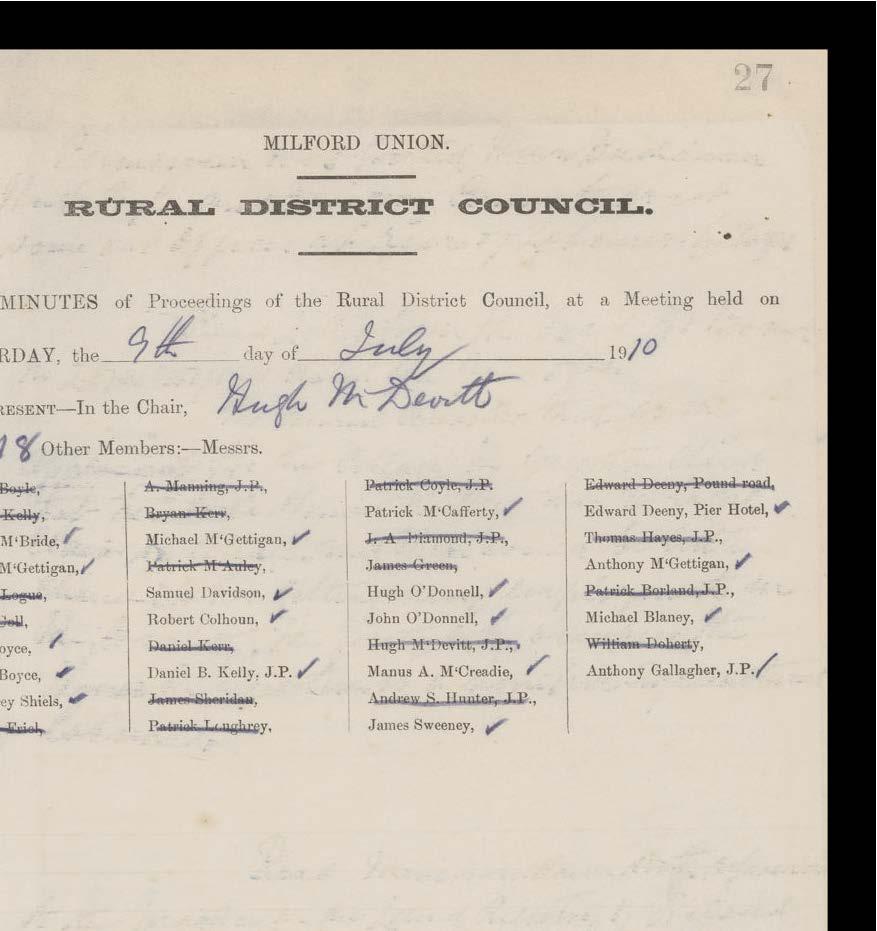 27
MILFORD UNION.
RURAL DISTRICT COUNCIL.
MINUTES of Proceedings of the Rural District Council, at a Meeting held on
RDAY, the 9th day of July 1910
RESENT—In the Chair, Hugh McDevitt
18 Other Members:—Messrs.
Boyle,
Kelly,
M'Bride,
M'Gettigan,
Logue,
Coll,
oyce,
Boyce,
ey Shiels,
Friel,
A. Manning, J.P.,
Bryan Kerr,
Michael M'Gettigan,
Patrick M'Auley,
Samuel Davidson,
Robert Colhoun,
Daniel Kerr,
Daniel B. Kelly, J.P.
James Sheridan,
Patrick Loughrey,
Patrick Coyle, J.P.
Patrick M'Cafferty,
J. A Diamond, J.P.,
James Green,
Hugh O'Donnell,
John O'Donnell,
Hugh M'Devitt, J.P.,
Manus A. M'Creadie,
Andrew S. Hunter, J.P.,
James Sweeney,
Edward Deeny, Pound road,
Edward Deeny, Pier Hotel,
Thomas Hayes, J.P.,
Anthony M'Gettigan,
Patrick Borland, J.P.,
Michael Blaney,
William Doherty,
Anthony Gallagher, J.P.